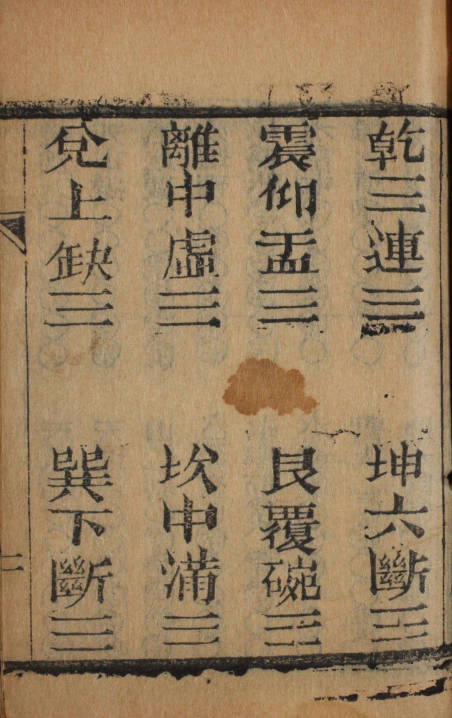 乾三連☰ 坤六斷☷
震仰盂☳ 艮覆碗☶
離中虛☲ 坎中滿☵
兌上缺☱ 巽下斷☴